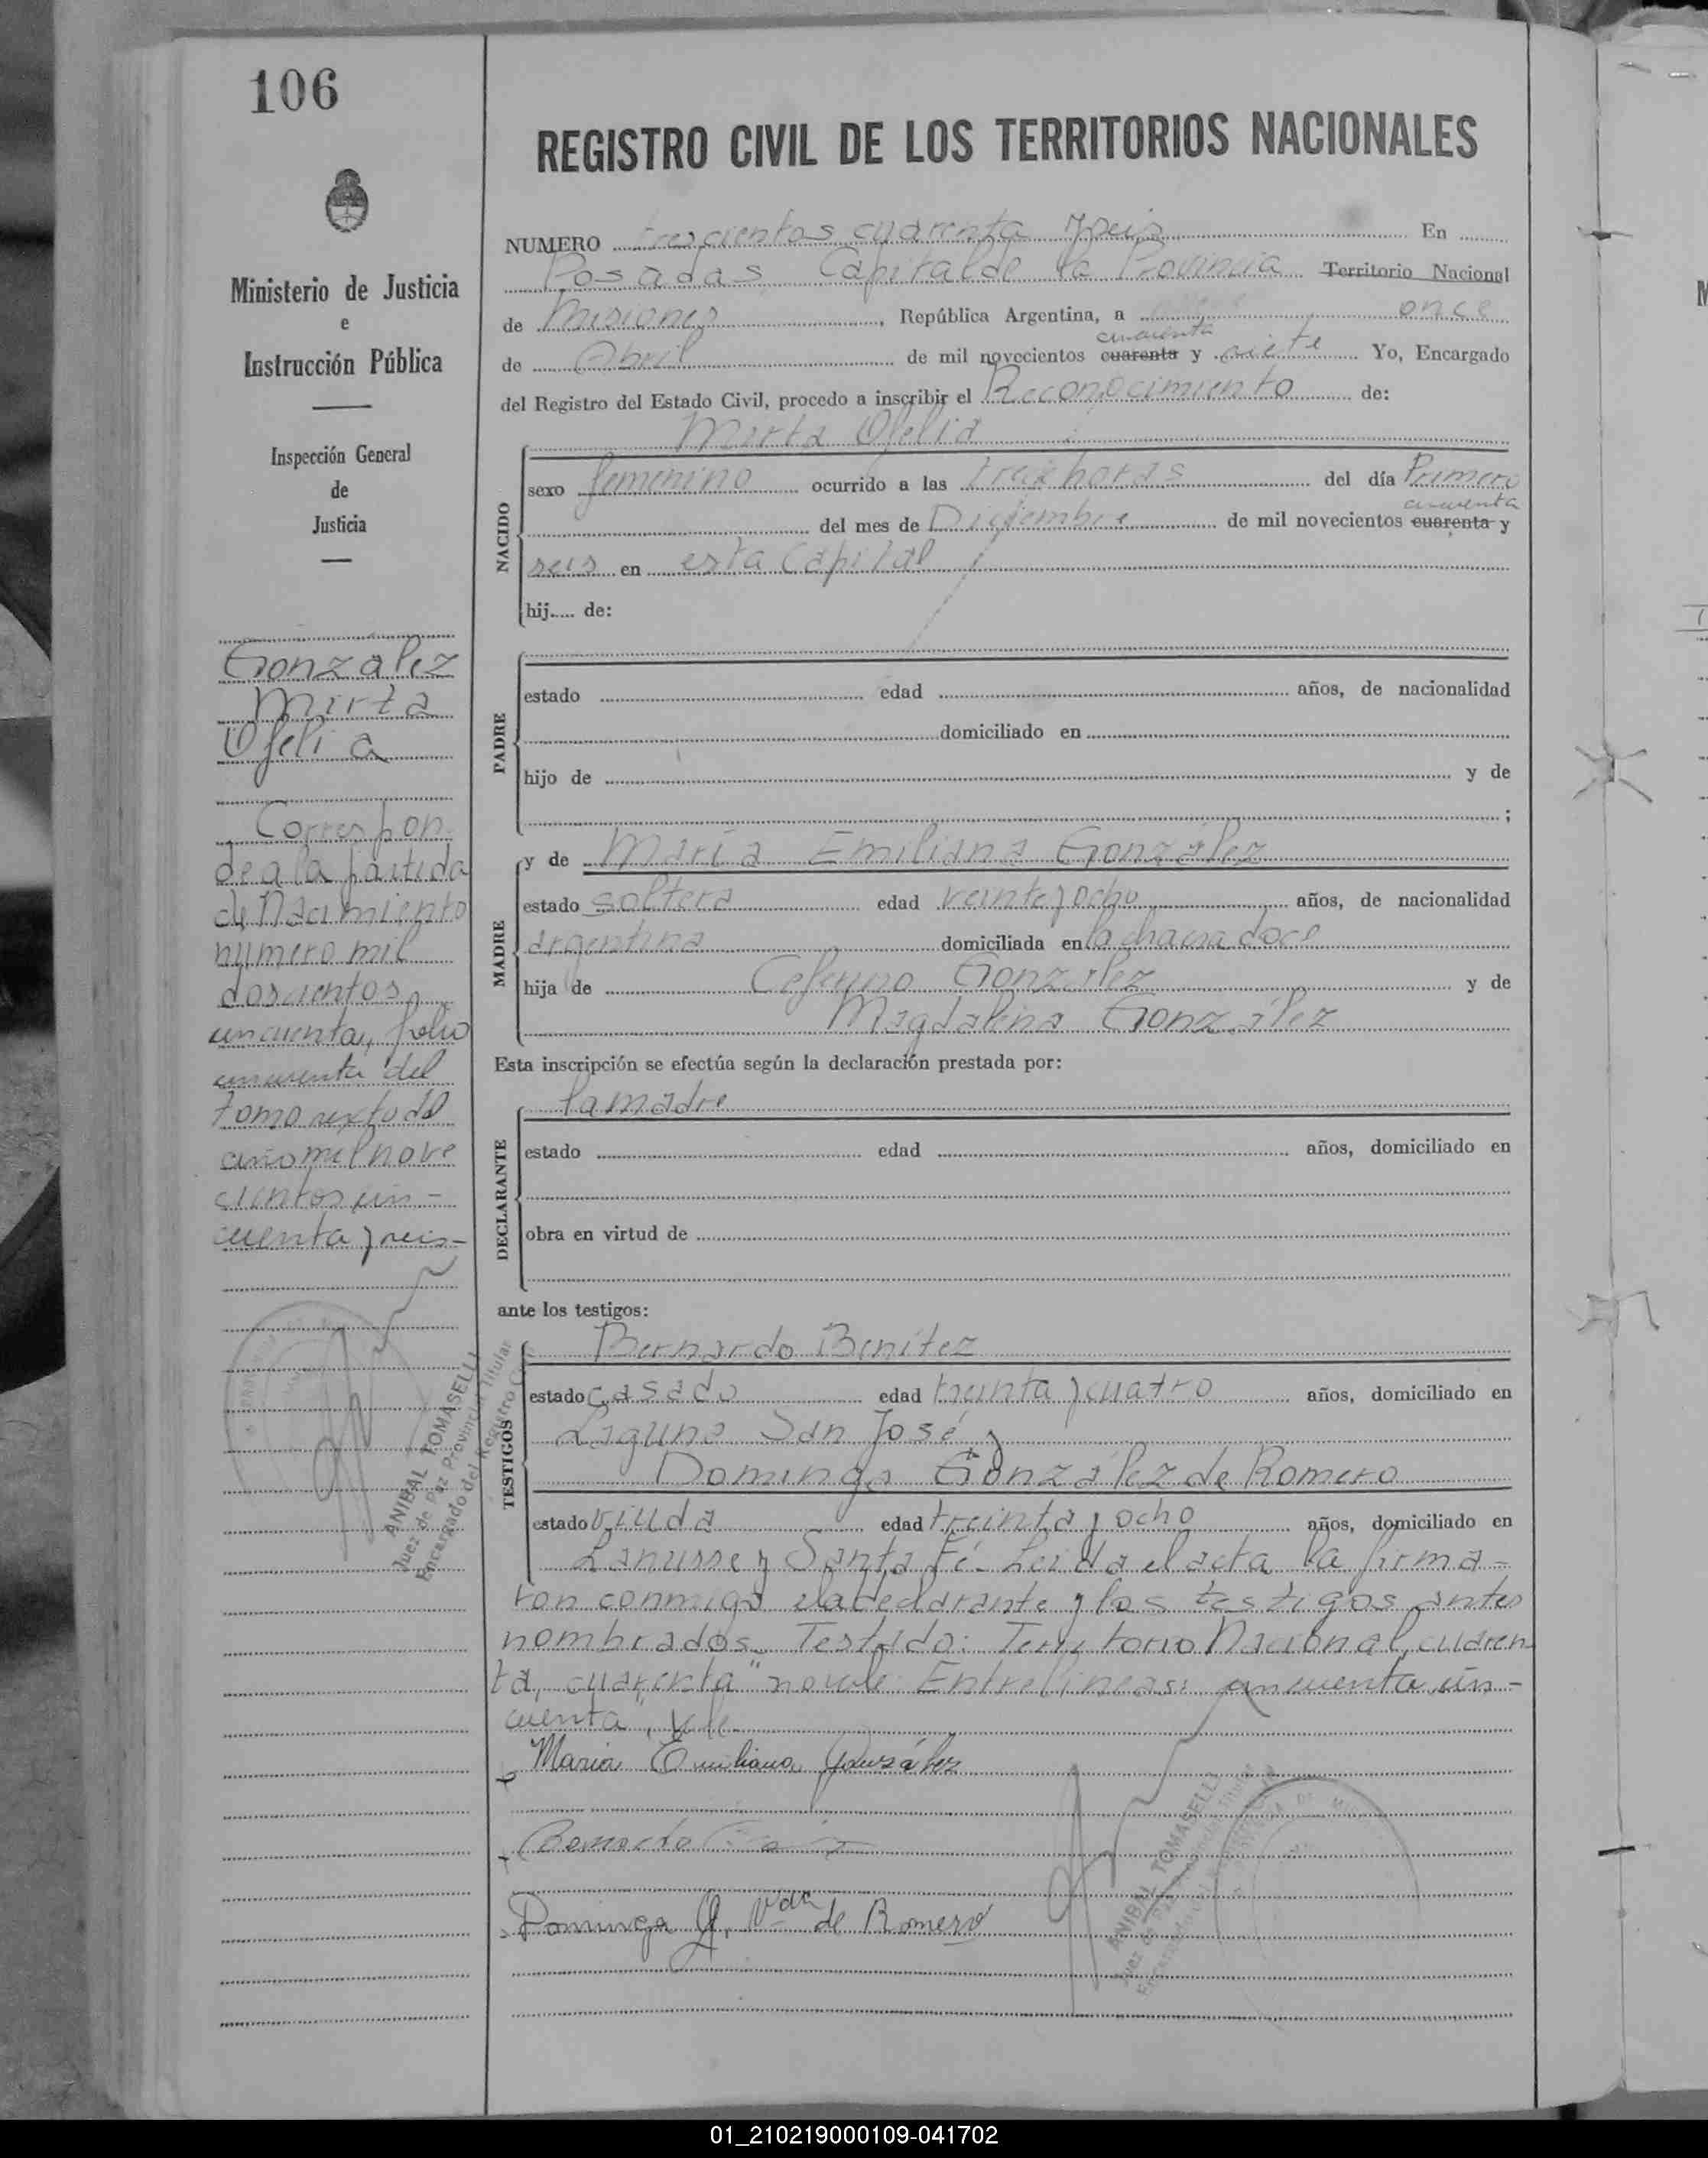 106
Ministerio de Justicia
e
Instrucción Pública
Inspección General
de
Justicia
González
Mirta
Ofelia
Correspon
de a la partida
de Nacimiento
número mil
doscientos
cincuenta, folio
cincuenta del
tomo sexto del
año mil nove
cientos cin-
cuenta y seis-
ANIBAL TOMASELLI
Juez de Paz Provincial Titular
Encargado del Registro
REGISTRO CIVIL DE LOS TERRITORIOS NACIONALES
NUMERO trescientos cuarenta y seis En
Posadas Capital de la Provincia Territorio Nacional
de Misiones, República Argentina, a once
cincuenta
de Abril de mil novecientos cuarenta y siete Yo, Encargado
del Registro del Estado Civil, procedo a inscribir el Reconocimiento de:
Mirta Ofelia
NACIDO
sexo femenino ocurrido a las horas del día Primero
cincuenta
del mes de Diciembre de mil novecientos cuarenta y
seis en esta Capital
hij.... de:
PADRE
estado edad años, de nacionalidad
domiciliado en
hijo de y de
;
MADRE
y de María Emiliana González
estado soltera edad veinte y ocho años, de nacionalidad
argentina domiciliada en la chacra doce
hija de Ceferino González y de
Magdalena González
Esta inscripción se efectúa según la declaración prestada por:
la madre
DECLARANTE
estado edad años, domiciliado en
obra en virtud de
ante los testigos:
TESTIGOS
Bernardo Benítez
estado casado edad treinta y cuatro años, domiciliado en
Laguna San José y
Dominga González de Romero
estado viuda edad treinta y ocho años, domiciliado en
Lanusse y Santa Fé. Leida el acta la firma-
ron conmigo la declarante y los testigos antes
nombrados. Testado: Territorio Nacional, cuaren
ta, cuarenta" no vale Entrelineas: cincuenta, cin-
cuenta", vale
Maria Emiliana González
Bernardo
Dominga G. Vda de Romero
ANIBAL TOMASELLI
Juez de Paz Provincial Titular
01_210219000109-041702